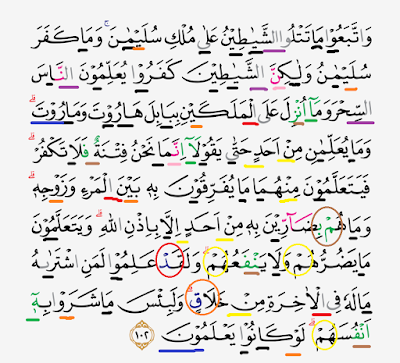 وَاتَّبَعُوْا مَا تَتْلُوا الشَّيٰطِيْنُ عَلٰى مُلْكِ سُلَيْمٰنَ ۚ وَمَا كَفَرَ
سُلَيْمٰنُ وَلٰكِنَّ الشَّيٰطِيْنَ كَفَرُوْا يُعَلِّمُوْنَ النَّاسَ
السِّحْرَ وَمَآ اُنْزِلَ عَلَى الْمَلَكَيْنِ بِبَابِلَ هَارُوْتَ وَمَارُوْتَ ۗ
وَمَا يُعَلِّمٰنِ مِنْ اَحَدٍ حَتّٰى يَقُوْلَآ اِنَّمَا نَحْنُ فِتْنَةٌ فَلَا تَكْفُرْ ۗ
فَيَتَعَلَّمُوْنَ مِنْهُمَا مَا يُفَرِّقُوْنَ بِهٖ بَيْنَ الْمَرْءِ وَزَوْجِهٖ ۗ
وَمَا هُمْ بِضَاۤرِّيْنَ بِهٖ مِنْ اَحَدٍ اِلَّا بِاِذْنِ اللّٰهِ ۗ وَيَتَعَلَّمُوْنَ
مَا يَضُرُّهُمْ وَلَا يَنْفَعُهُمْ ۗ وَلَقَدْ عَلِمُوْا لَمَنِ اشْتَرٰىهُ
مَا لَهٗ فِى الْاٰخِرَةِ مِنْ خَلَاقٍ ۗ وَلَبِئْسَ مَا شَرَوْا بِهٖٓ
اَنْفُسَهُمْ ۗ لَوْ كَانُوْا يَعْلَمُوْنَ ١٠٢